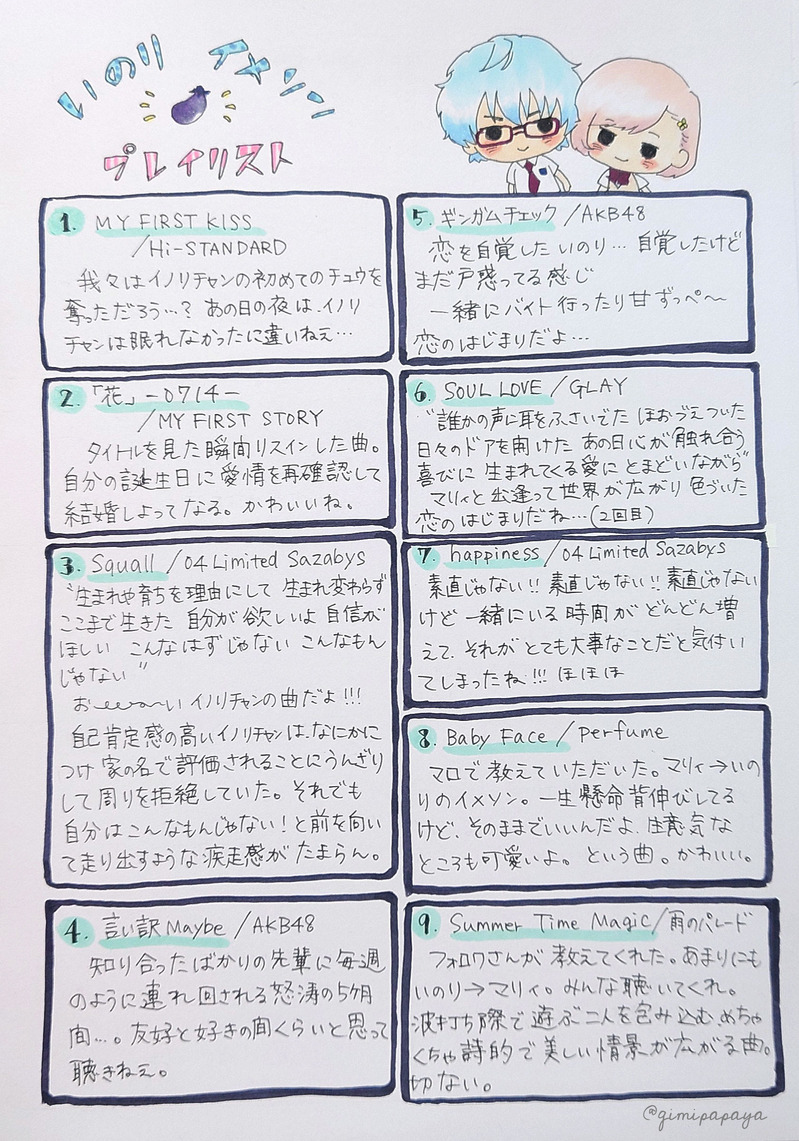 いのり イメソン
プレイリスト
1. MY FIRST KISS
/Hi-STANDARD
我々はイノリチャンの初めてのチュウを
奪っただろう…? あの日の夜は、イノリ
チャンは眠れなかったに違いねえ…
2. 「花」-0714-
/MY FIRST STORY
タイトルを見た瞬間リスインした曲。
自分の誕生日に愛情を再確認して
結婚しよってなる。かわいいね。
3. Squall/04 Limited Sazabys
"生まれや育ちを理由にして 生まれ変わらず
ここまで生きた 自分が欲しいよ 自信が
ほしい こんなはずじゃない こんなもん
じゃない"
お〜〜〜い イノリチャンの曲だよ!!!
自己肯定感の高いイノリチャンは、なにかに
つけ 家の名で評価されることにうんざり
して周りを拒絶していた。それでも
自分はこんなもんじゃない!と前を向い
て走り出すような疾走感がたまらん。
4. 言い訳Maybe/AKB48
知り合ったばかりの先輩に毎週
のように連れ回される怒涛の5ヶ月
間…。友好と好きの間くらいと思って
聴きねえ。
5. ギンガムチェック/AKB48
恋を自覚したいのり…自覚したけど
まだ戸惑ってる感じ
一緒にバイト行ったり甘ずっぺ〜
恋のはじまりだよ…
6. SOUL LOVE/GLAY
"誰かの声に耳をふさいでた ほおづえついた
日々のドアを開けた あの日心が触れ合う
喜びに 生まれてくる愛に とまどいながら"
マリィと出逢って世界が広がり 色づいた
恋のはじまりだね…(2回目)
7. happiness/04 Limited Sazabys
素直じゃない!! 素直じゃない!! 素直じゃない
けど一緒にいる時間が どんどん増
えて、それがとても大事なことだと気付い
てしまったね!!! ほほほ
8. Baby Face/Perfume
マロで教えていただいた。マリィ→いの
りのイメソン。一生懸命背伸びしてる
けど、そのままでいいんだよ、生意気な
ところも可愛いよ。という曲。かわいい。
9. Summer Time Magic/雨のパレード
フォロワさんが教えてくれた。あまりにも
いのり→マリィ。みんな聴いてくれ。
波打ち際で遊ぶ二人を包み込む、めちゃ
くちゃ詩的で美しい情景が広がる曲。
切ない。
@gimipapaya